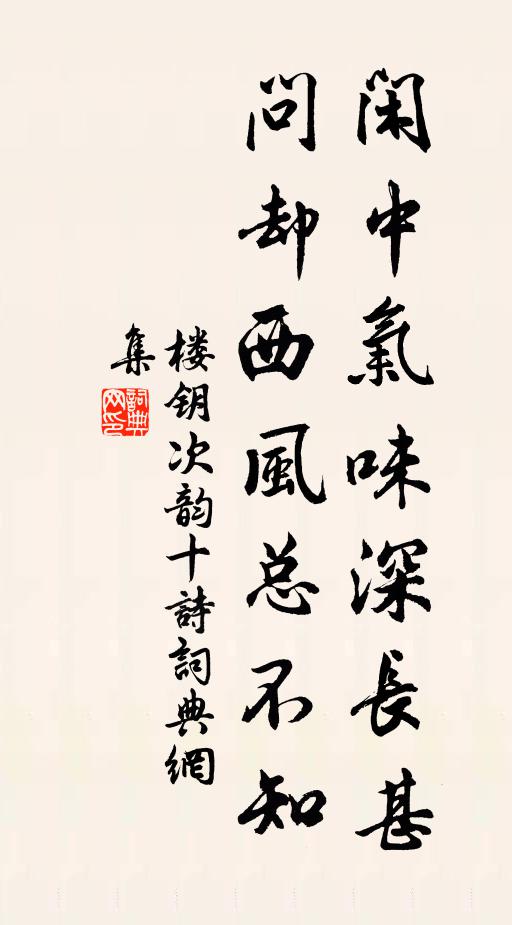 閑中氣味深長甚
問却西風总不知
楼钥次韵十詩詞典網
集
詞典网印